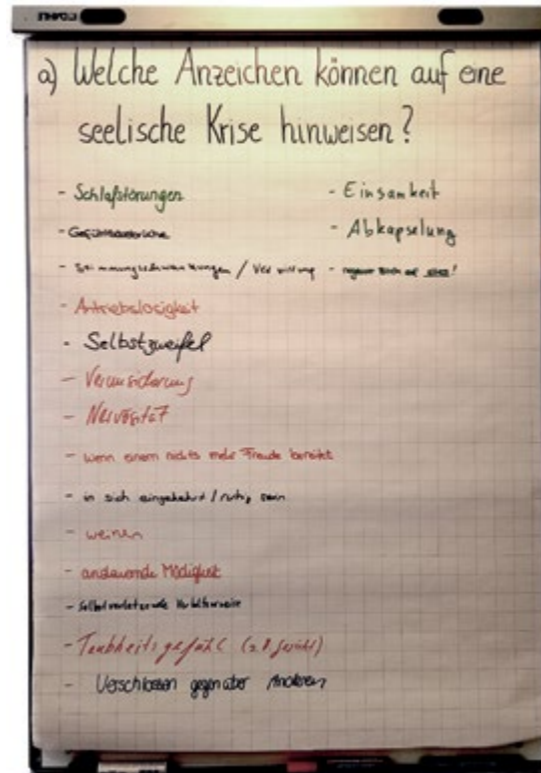 a) Welche Anzeichen können auf eine
seelische Krise hinweisen?
- Schlafstörungen
- Gefühlsausbrüche
- Stimmungsschwankungen / Verwirrung
- Antriebslosigkeit
- Selbstzweifel
- Verunsicherung
- Nervosität
- wenn einem nichts mehr Freude bereitet
- in sich eingekehrt / ruhig sein
- weinen
- andauernde Müdigkeit
- selbstverletzende Verhaltensweise
- Taubheitsgefühl (z.B. Gesicht)
- Verschlossen gegenüber Anderen
- Einsamkeit
- Abkapselung